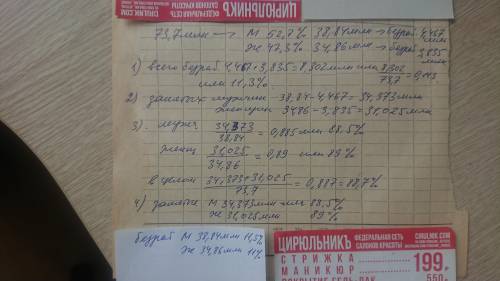 ЦИРЮЛЬНИКЪ ФЕДЕРАЛЬНАЯ СЕТЬ САЛОНОВ КРАСОТЫ CIRULNIK.COM
73,7 млн → М 52,7% 38,84 млн → безраб 4,467 млн
Ж 47,3% 34,86 млн → безраб 3,835 млн
1) всего безраб 4,467+3,835=8,302 млн или 8,302/73,7=0,113
или 11,3%
2) занятых мужчин – 38,84-4,467=34,373 млн
женщин 34,86-3,835=31,025 млн
3). мужч 34,373/38,84=0,885 или 88.5%
женщ 31,025/34,86=0,89 или 89%
в целом 34,373+31,025/73,7=0,887=88,7%
4) занятые М 34,373 млн или 88.5%
Ж 31,025 млн 89%
безраб М 38,84 млн 11,5%
Ж 34,86 млн 11%
ЦИРЮЛЬНИКЪ ФЕДЕРАЛЬНАЯ СЕТЬ САЛОНОВ КРАСОТЫ CIRULNIK.COM
СТРИЖКА 199.
МАНИКЮР
ПОКРЫТИЕ ГЕЛЬ-ЛАК 550